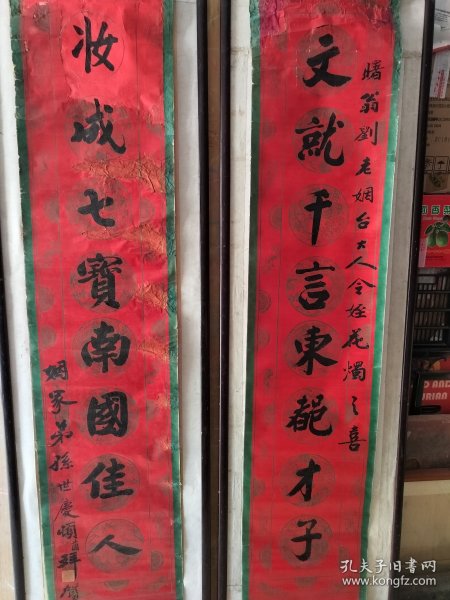 文就千言東都才子
曙翁劉老姻台大人令姪花燭之喜
妝成七寶南國佳人
姻家弟孫世慶頓拜賀
孔夫子旧书网
www.kongfz.com